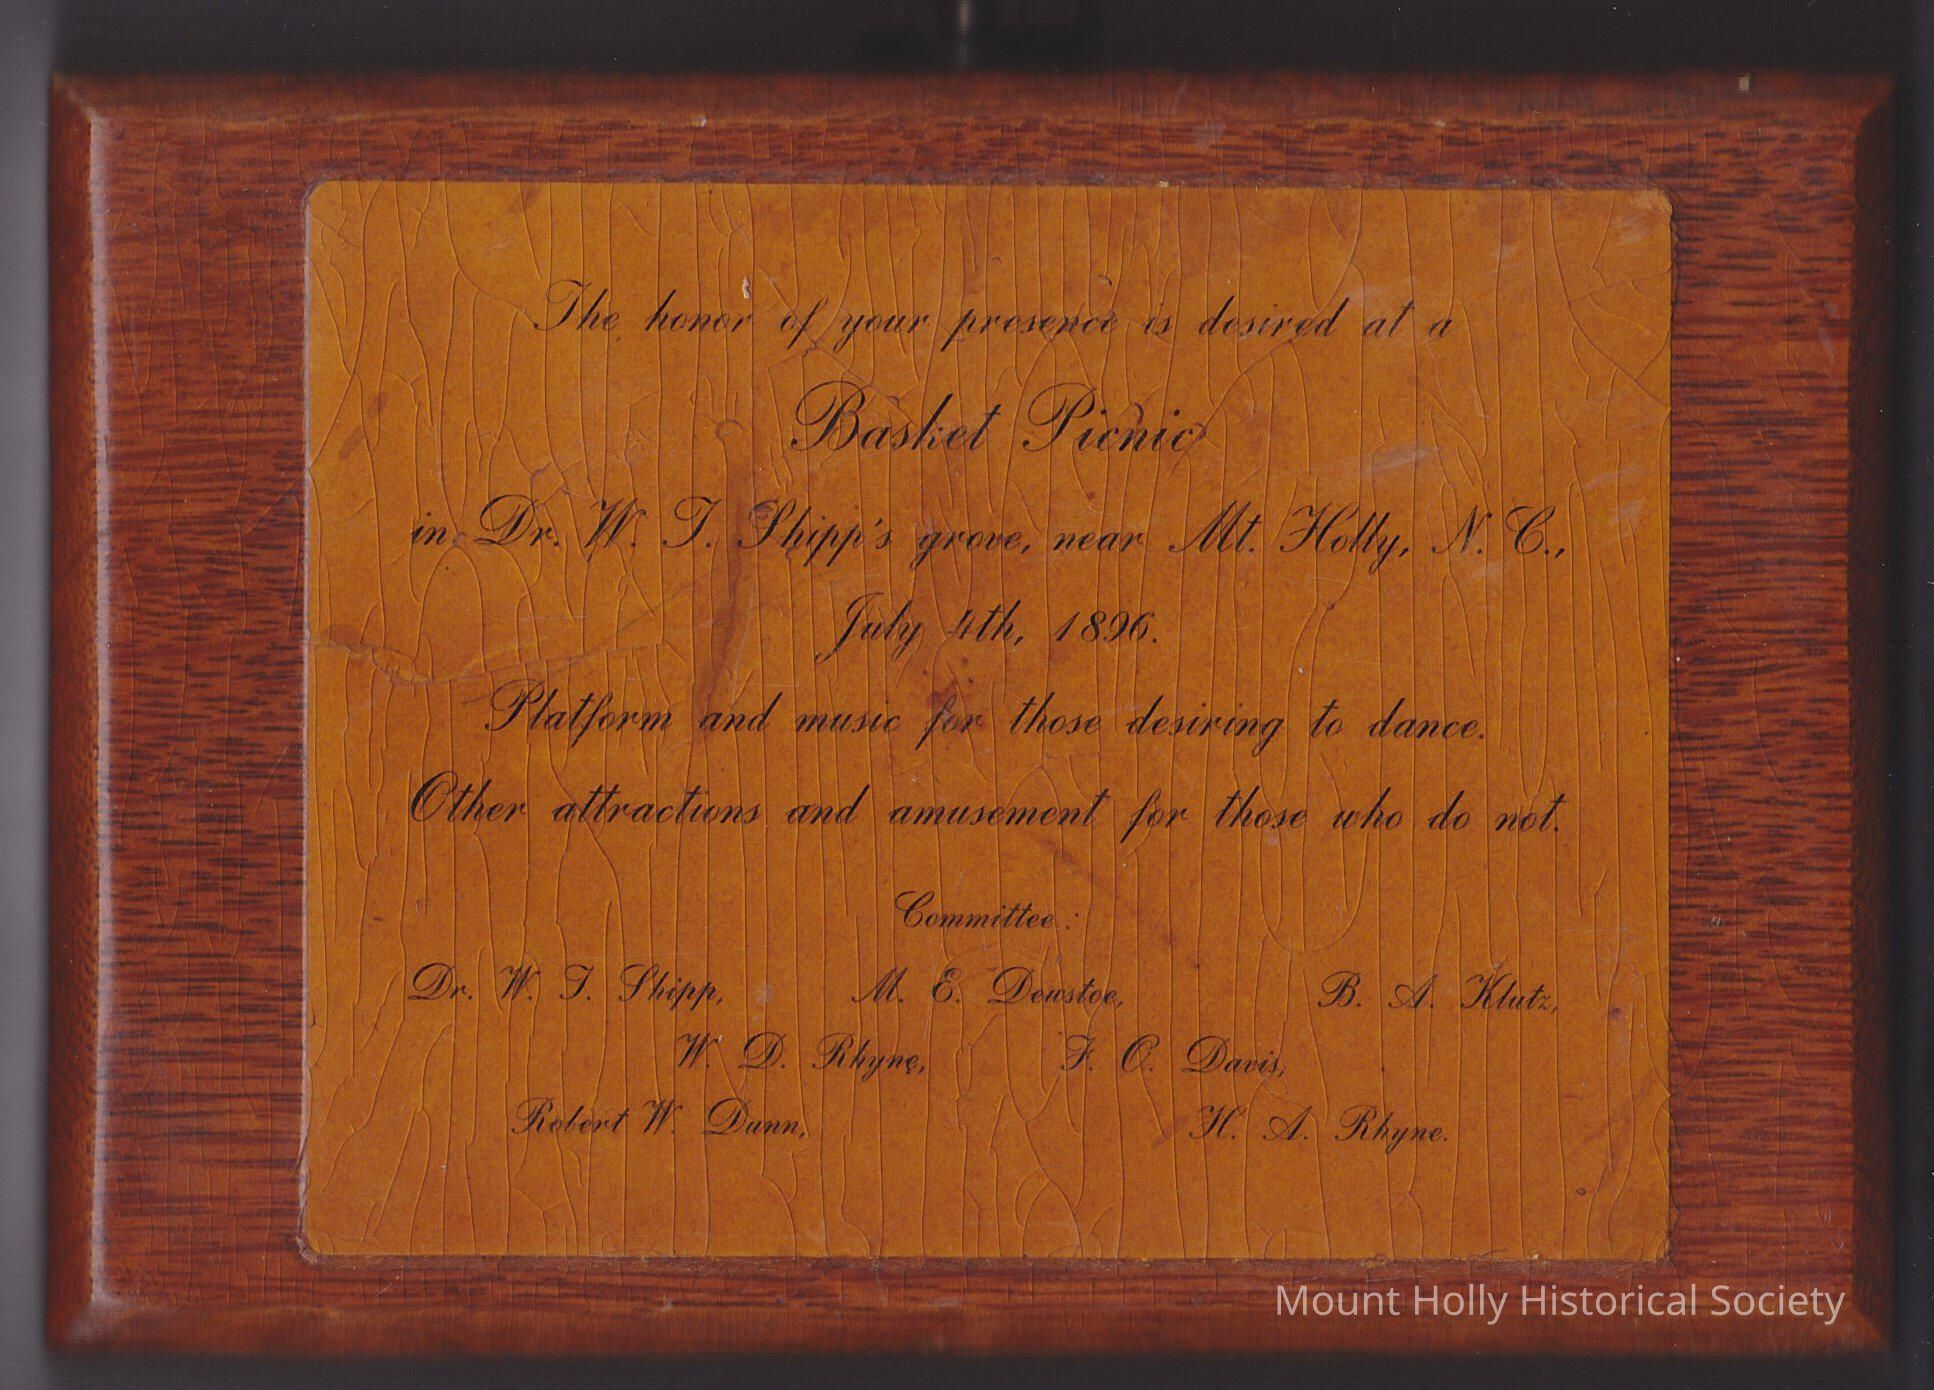 The honor of your presence is desired at a
Basket Picnic
in Dr. W. T. Shipp's grove, near Mt. Holly, N. C.,
July 4th, 1896.
Platform and music for those desiring to dance.
Other attractions and amusement for those who do not.
Committee:
Dr. W. T. Shipp, M. E. Dewstoe, B. A. Klutz,
W. D. Rhyne, F. O. Davis,
Robert W. Dunn, H. A. Rhyne.
Mount Holly Historical Society